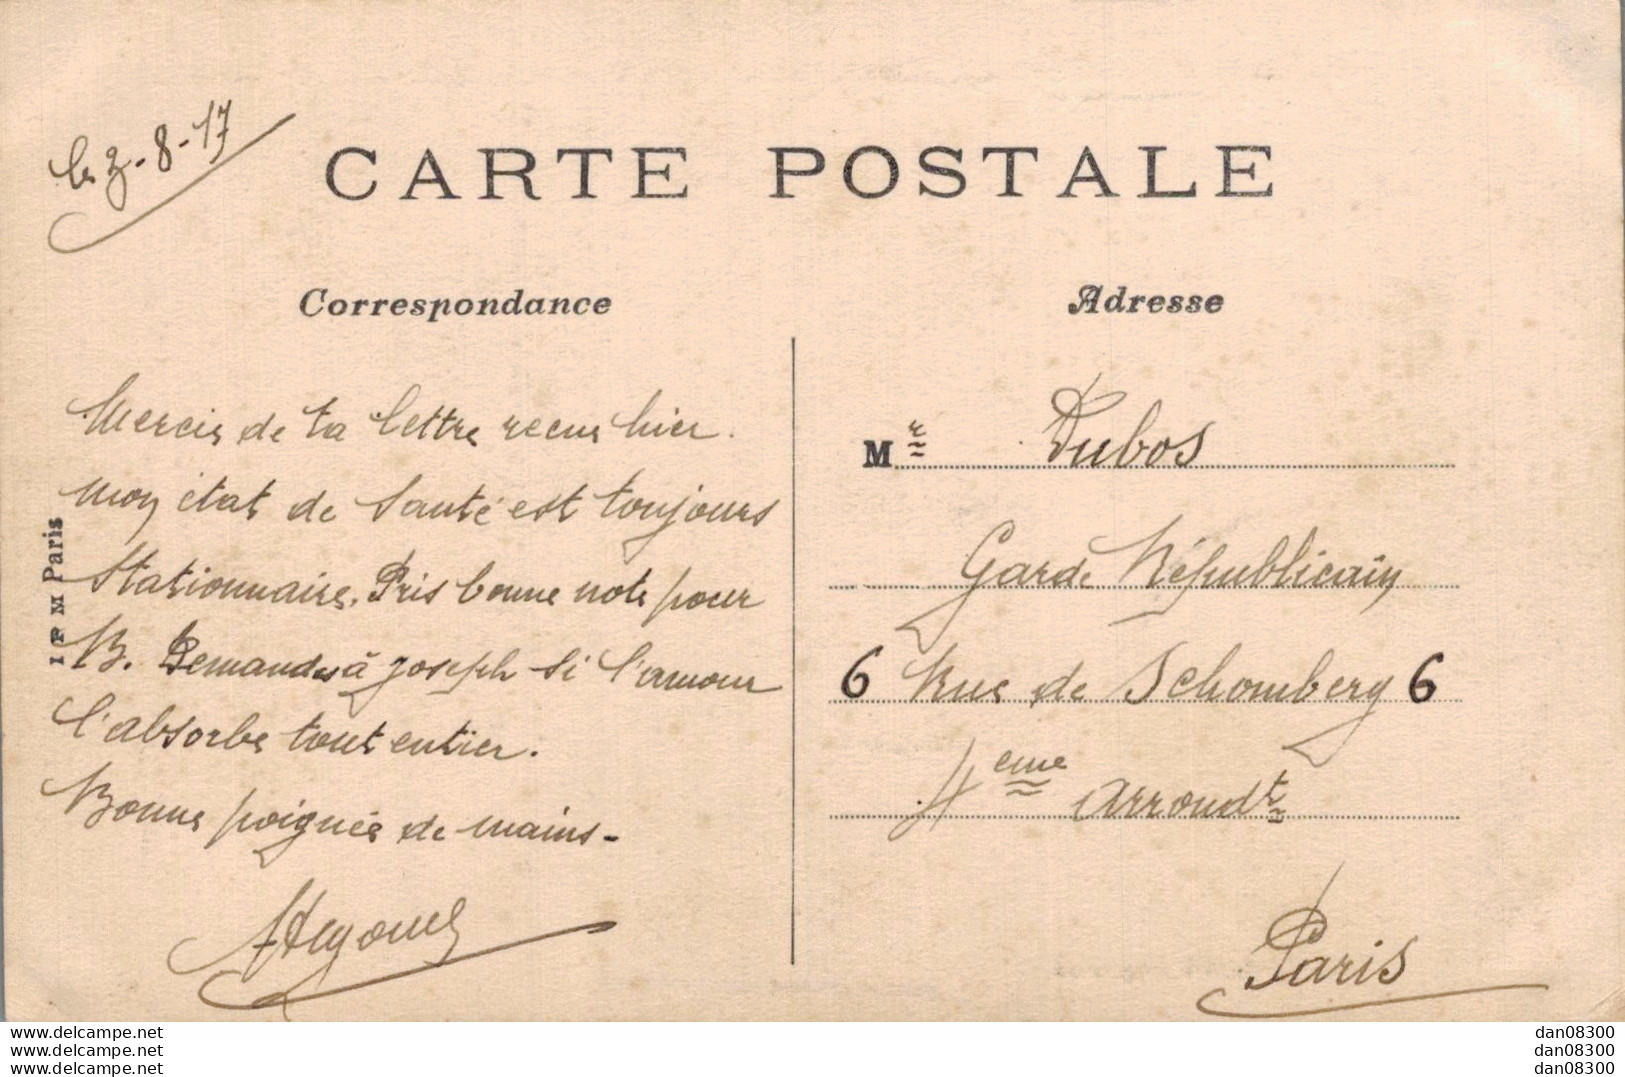 le 3-8-17
CARTE POSTALE
Correspondance
Adresse
Mercis de ta lettre recue hier.
Mon état de Santé est toujours
Stationnaire. Pris bonne note pour
B. Demandes à Joseph Si l'amour
l'absorbe tout entier.
Bonne poignée de mains -
I P M Paris
Mr Dubos
Garde Républicain
6 Rue de Schomberg 6
4eme Arrondt
Paris
www.delcampe.net
www.delcampe.net
www.delcampe.net
dan08300
dan08300
dan08300